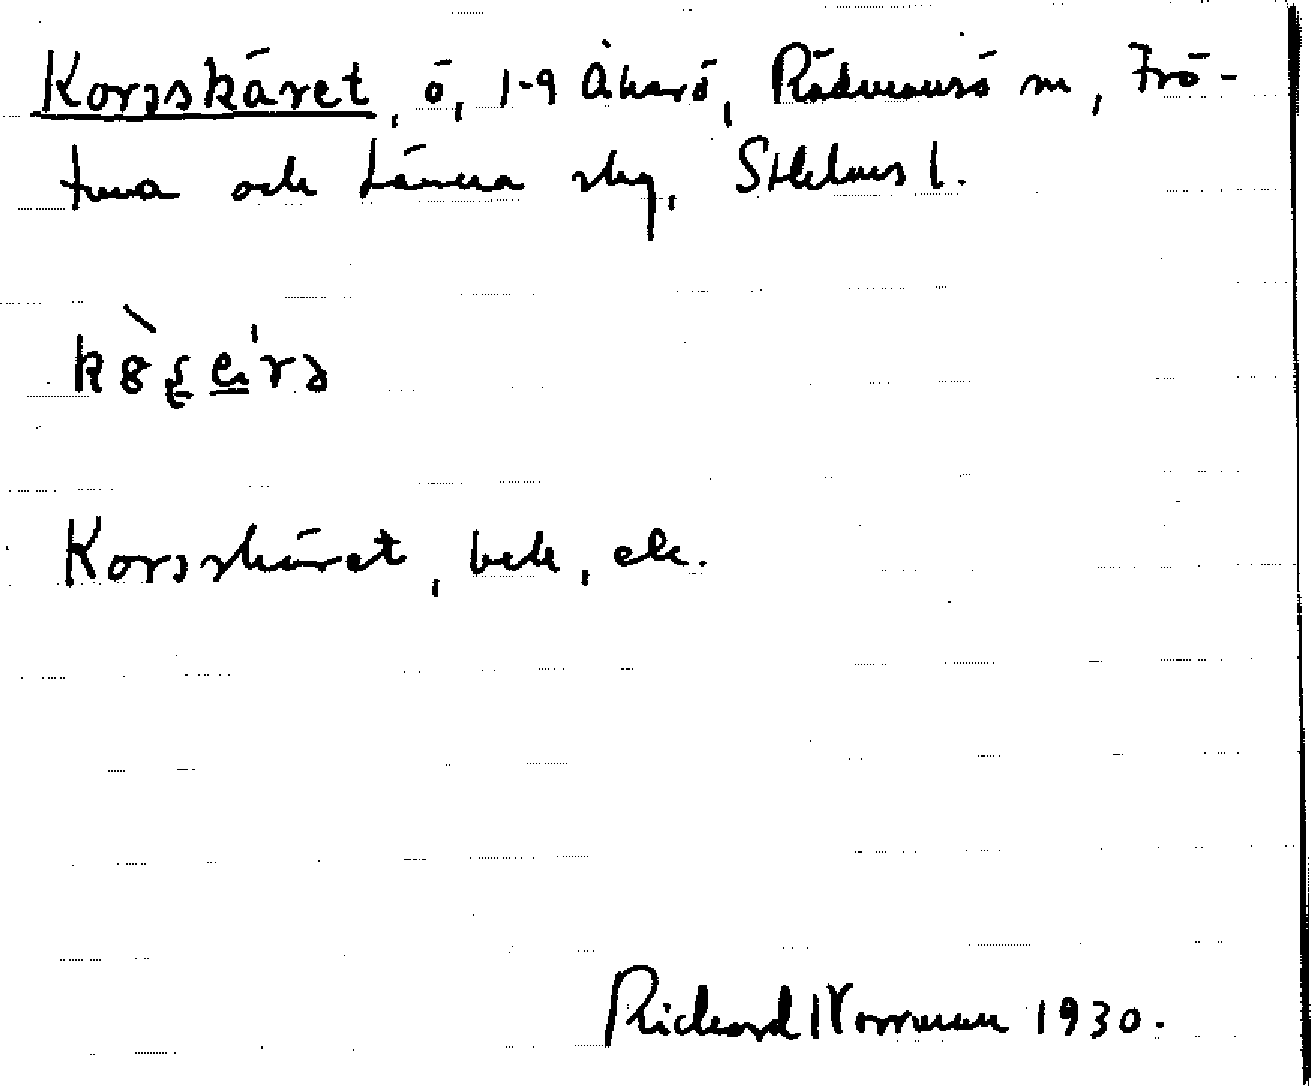 Korsskäret, ö, 1-9 Åkerö, Rådmansö sn, Frö-
tuna och Länna skg, Sthlms l.
Korsskäret, bek, ek.
Rickard Norrman 1930.